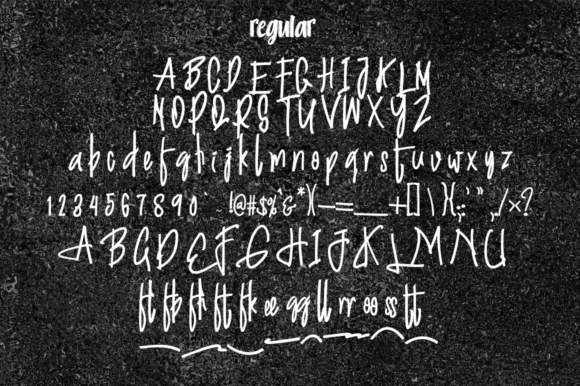 regular
A B C D E F G H I J K L M
N O P Q R S T U V W X Y Z
a b c d e f g h i j k l m n o p q r s t u v w x y z
1 2 3 4 5 6 7 8 9 0 ` ~ ! @ # $ % ^ & * ) ( — - = ___ + [ ] \ | } { ; : ' " , . / × ?
A B G D E F G H I J K L M N U
ft fb fh ft fk ee gg ll rr oo ss tt